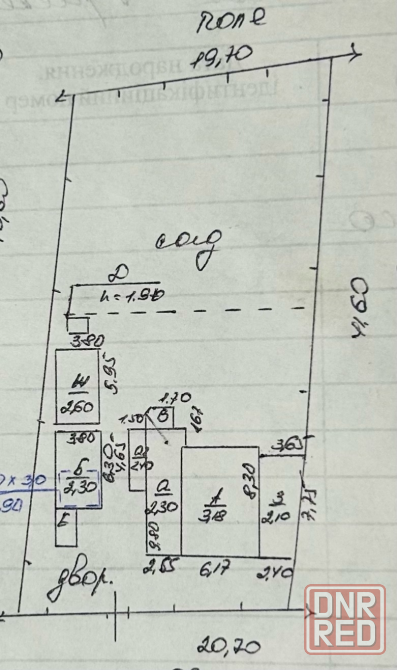 поле
19,70
сад
Д
h=1.90
3.80
5,95
Ш
2,60
3,80
6,30
Б
2,30
Е
1.70
1.50
В
1,67
4,65
а1
2,10
а
2,30
9.80
А
3,18
8,30
3,65
2,10
7,75
2,65
6,17
2,40
двор.
20,70
DNR
RED